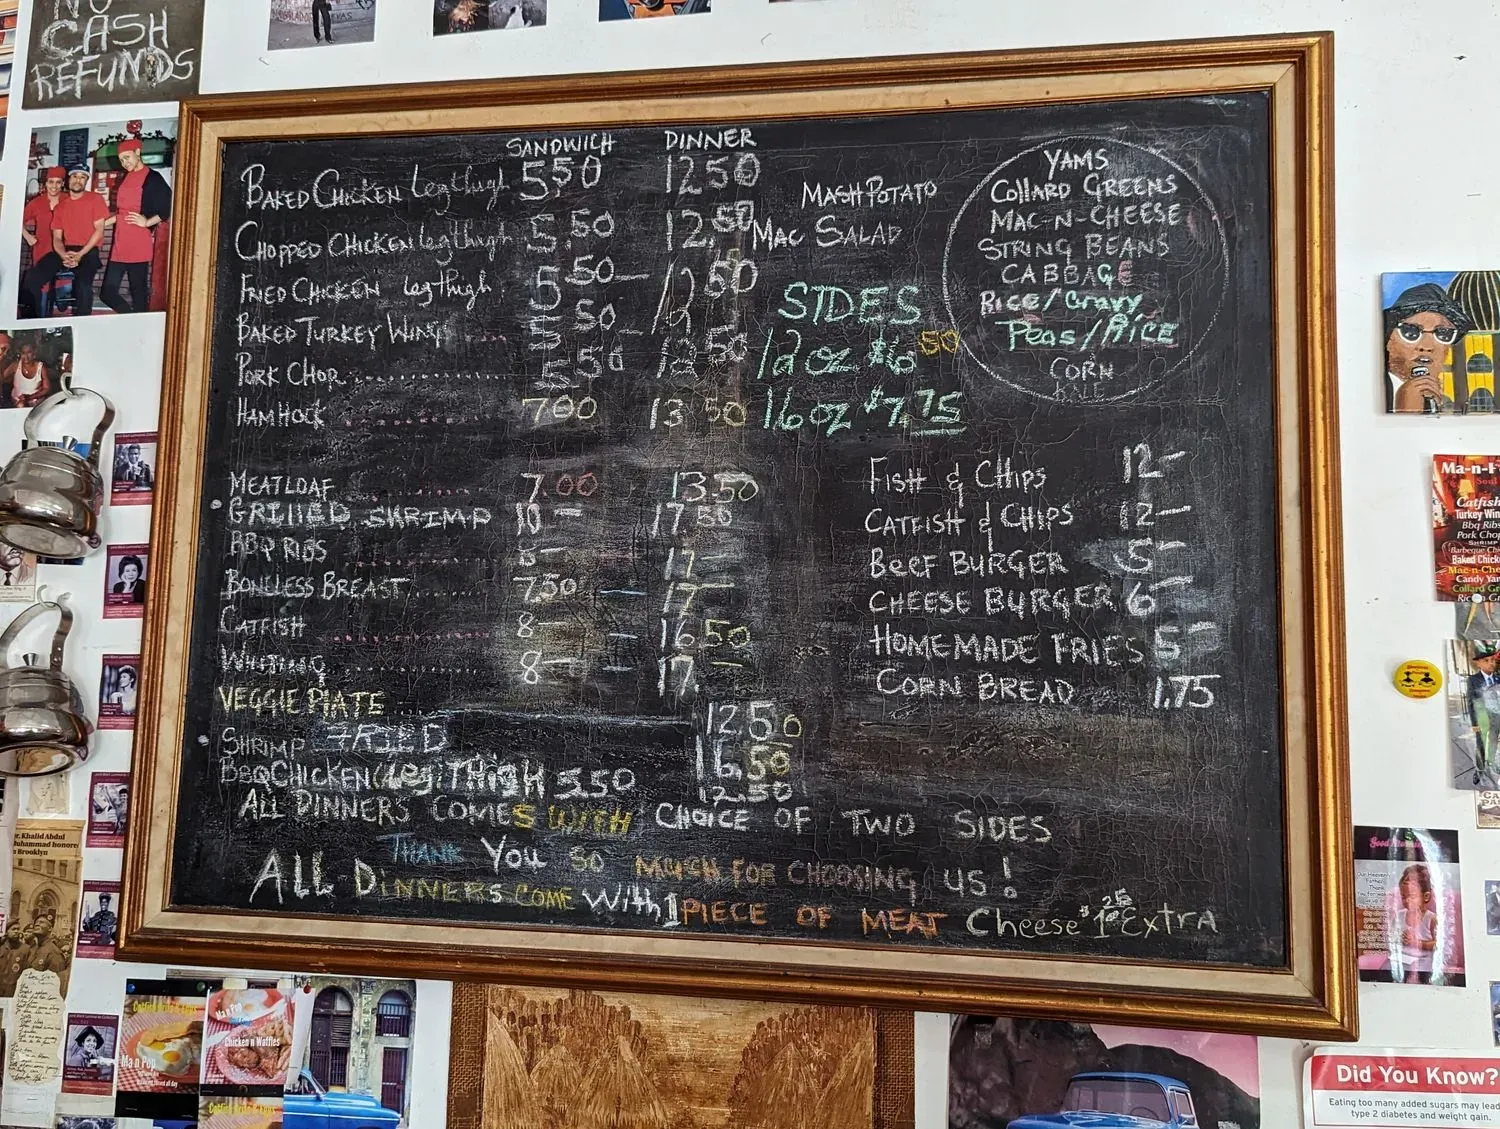 NO
CASH
REFUNDS
SANDWICH DINNER
BAKED CHICKEN Leg thigh 5.50 12 50
CHOPPED CHICKEN leg thigh 5.50 12.50
FRIED CHICKEN leg thigh 5.50 12 50
BAKED TURKEY WINGS 5.50
PORK CHOP 5.50
HAM HOCK 7 00 13 50
MEATLOAF 7.00 13.50
GRILLED SHRIMP 10 - 17.50
BBQ RIBS 17 -
BONELESS BREAST 7.50 - 17 -
CATFISH 8 - - 16 50
WHITING 8 - - 17. -
VEGGIE PLATE 12 50
SHRIMP FRIED 16.50
BBQ CHICKEN (Leg THIGH 5.50 12.50
ALL DINNERS COMES WITH CHOICE OF TWO SIDES
THANK You SO MUCH FOR CHOOSING US!
ALL DINNERS COME With 1 PIECE OF MEAT Cheese $1.25 ExTRA
MASH POTATO
MAC SALAD
SIDES
12 oz $6 50
16 oz $7.75
YAMS
COLLARD GREENS
MAC-N-CHEESE
STRING BEANS
CABBAGE
RICE/Gravy
Peas/RICE
CORN
KALE
FISH & CHIPS 12 -
CATFISH & CHIPS 12 -
BEEF BURGER 5 -
CHEESE BURGER 6 -
HOMEMADE FRIES 5 -
CORN BREAD 1.75
Ma-n-P
Soul
Catfish
Turkey Win
Bbq Ribs
Pork Chop
Shrimp
Barbeque Chic
Baked Chick
Mac-n-Che
Candy Yam
Collard Gr
r. Khalid Abdul
Muhammad honore
n Brooklyn
Ma n Pop
Chicken n Waffles
Did You Know?
Eating too many added sugars may lead
type 2 diabetes and weight gain.